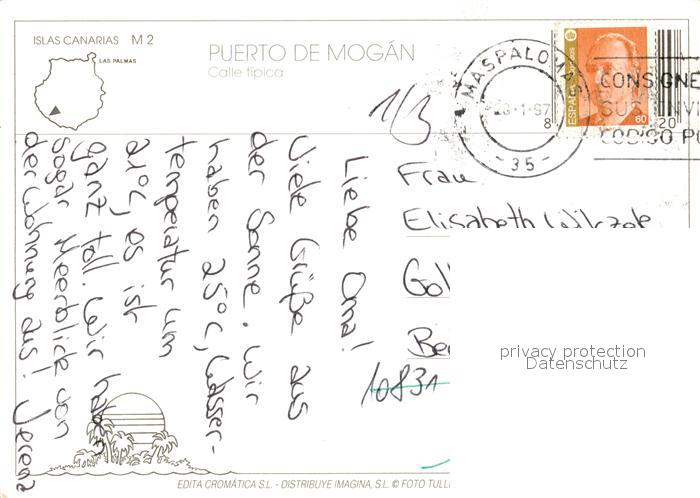 ISLAS CANARIAS M 2
LAS PALMAS
PUERTO DE MOGÁN
Calle típica
MASPALOMAS
-1-97
8
- 35 -
ESPAÑA
60
20
CONSIGNE
SU
CODIGO PO
1/3
Liebe Oma!
Viele Grüße aus
der Sonne. Wir
haben 25°C, Wasser-
temperatur um
21°C, es ist
ganz toll. Wir haben
sogar Meerblick von
der Wohnung aus! Verena
Frau
Elisabeth Wilczek
Gol
Be
10831
privacy protection
Datenschutz
EDITA CROMÁTICA S.L. - DISTRIBUYE IMAGINA, S.L. © FOTO TULL